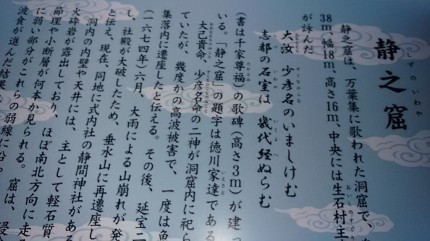 静之窟
静之窟は、万葉集に歌われた洞窟で、
38m、幅18m、高さ16m、中央には生石村主
が詠んだ
大汝 少彦名のいましけむ
志都の石室は 幾代経ぬらむ
(書は千家尊福)の歌碑(高さ3m)が建っ
いる。「静之窟」の題字は徳川家達である
大己貴命、少彦名命の二神が洞窟内に祀ら
ていたが、幾度かの高波被害で、一度は魚
集落内に遷座したと伝える。その後、延宝二
(一六七四年)六月、大雨による山崩れが発
し、社殿が大破したため、垂水山に再遷座し
と伝え、現在、同地に式内社の静間神社がある
洞内の側壁や天井には、主として軽石質
火砕岩が露出しており、ほぼ南北方向に走
節理や小断層が何本か見られる。窟は、
に弱い部分がこれらの弱線に沿っ
波食が進んだ結果